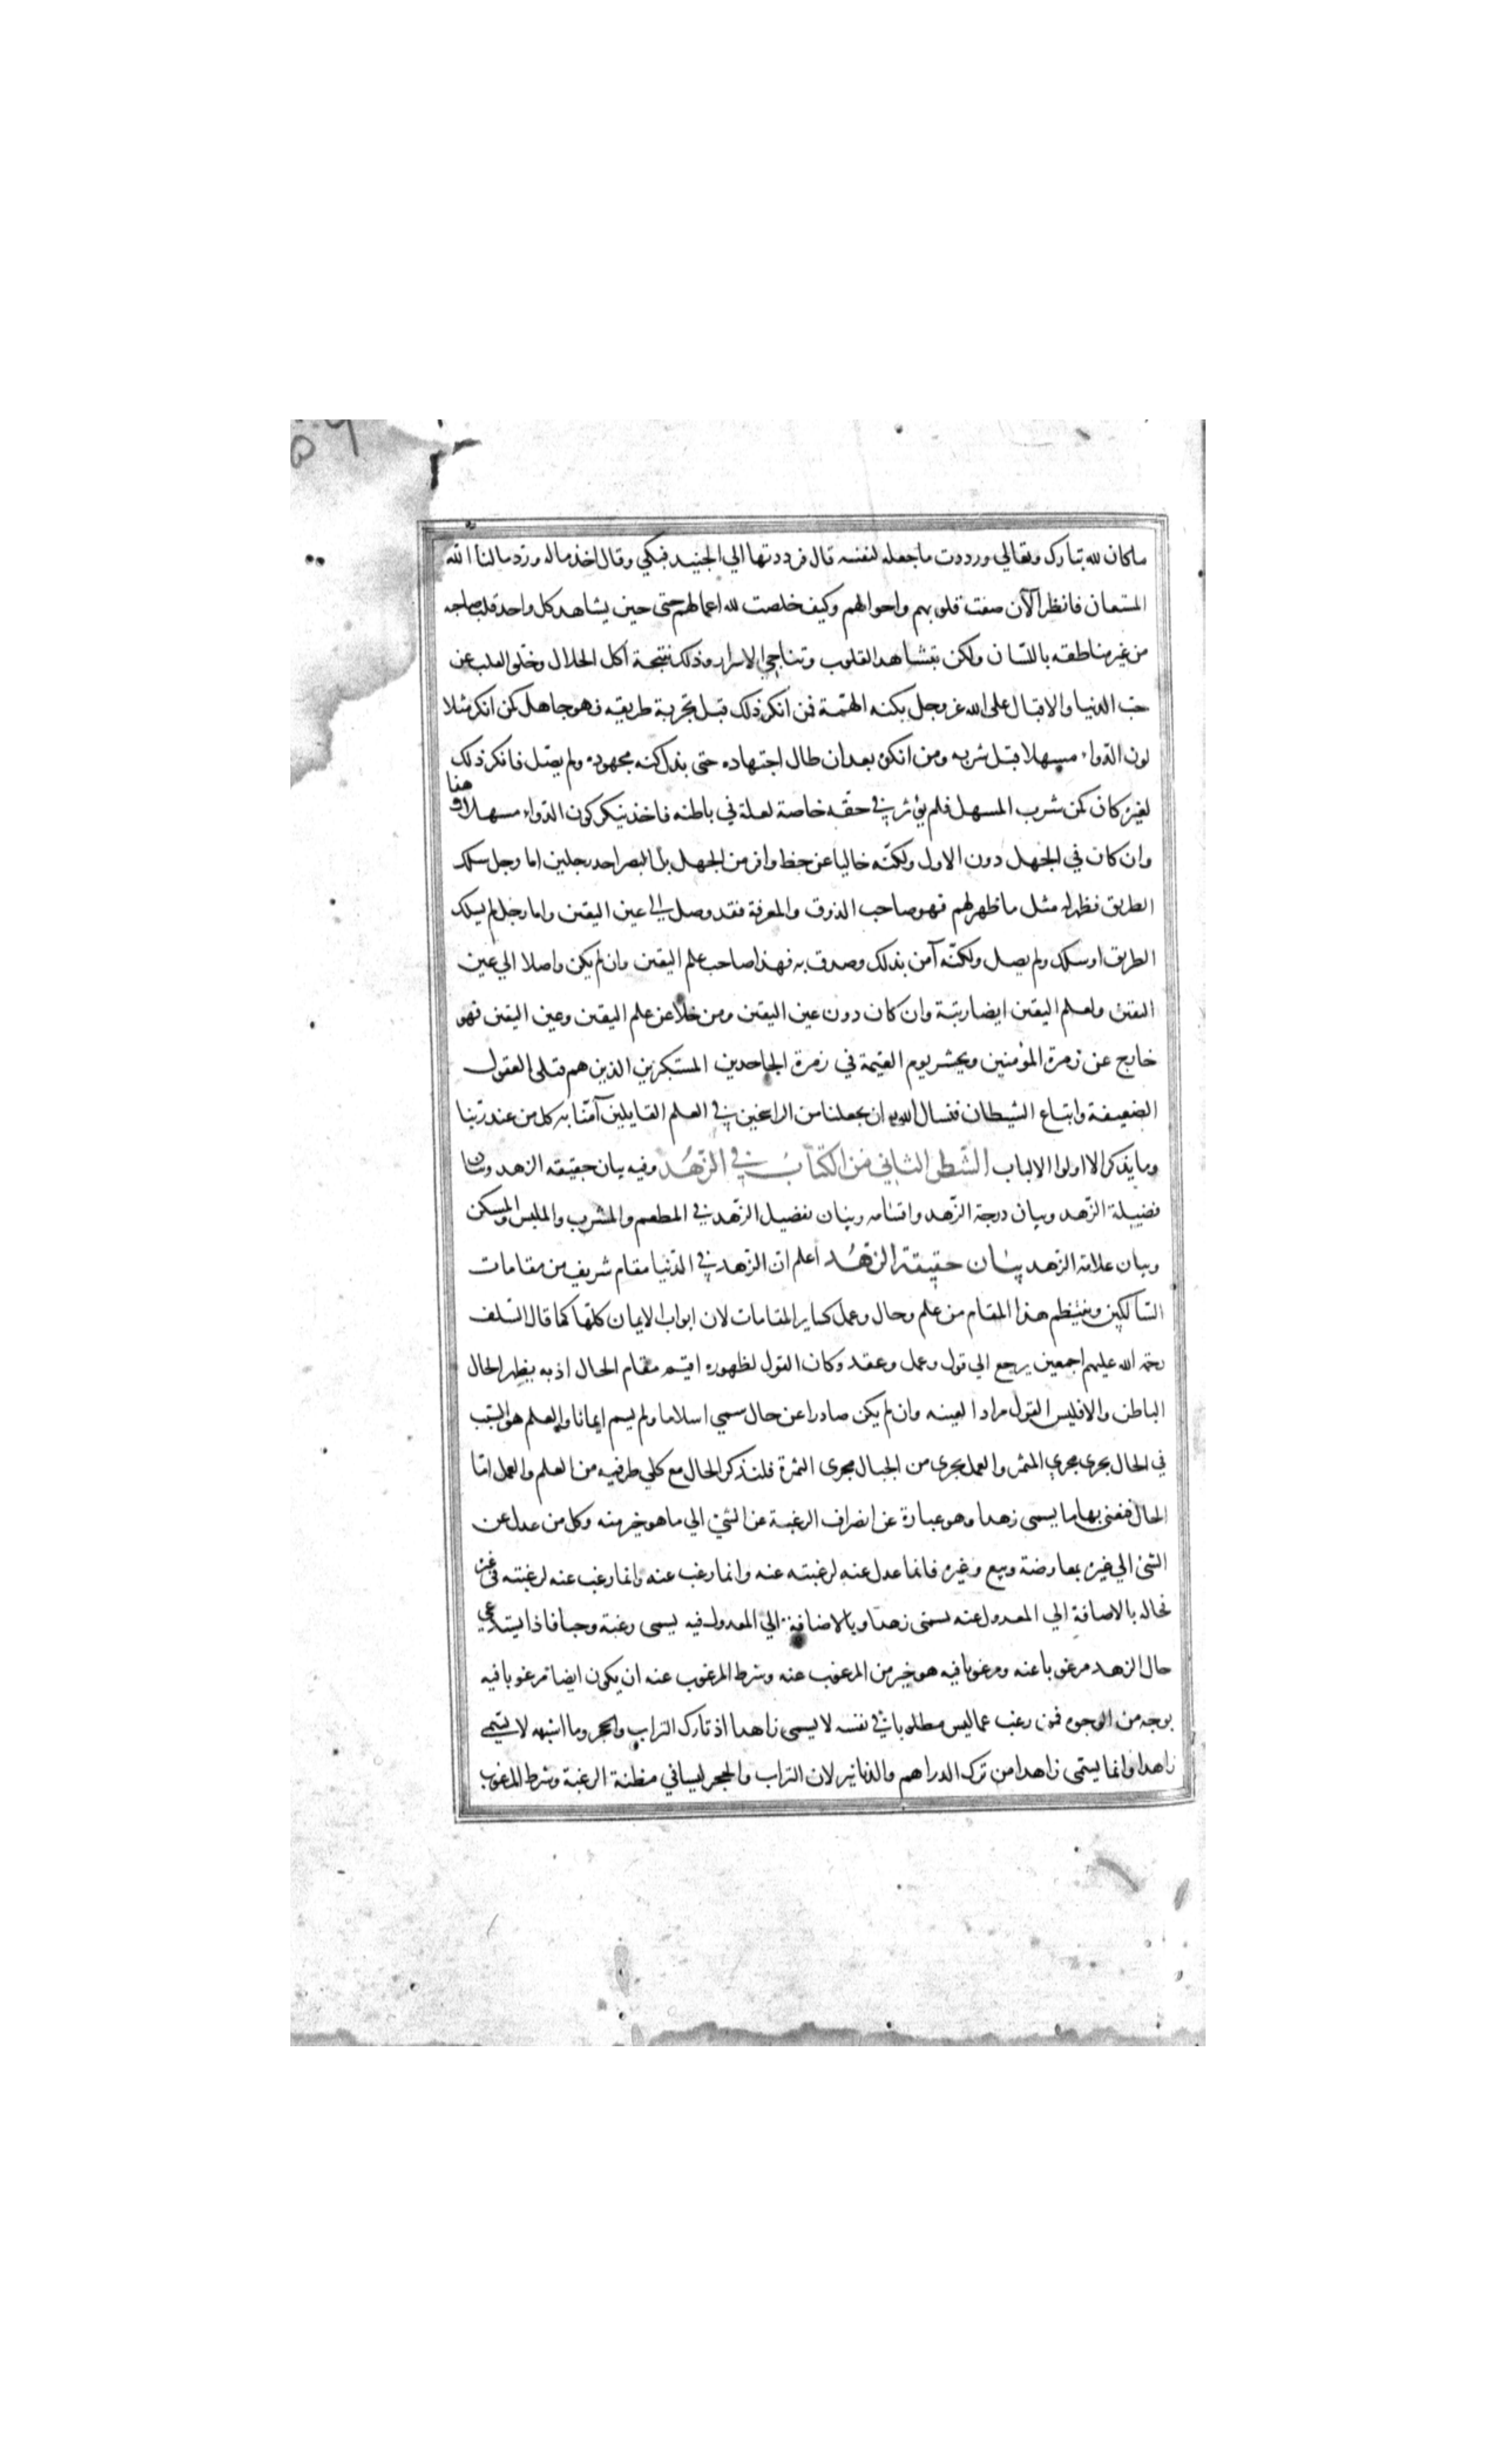 ماكان لله تبارك وتعالي ورددت ماجعله لنفسه قال فرددتها الي الجنيد فبكي وقال اخذ ماله ورد مالنا الله
المستعان فانظر الآن صفت قلوبهم واحوالهم وكيف خلصت لله اعمالهم حتى حين يشاهد كل واحد قلب صاحبه
من غير مناطقه باللسان ولكن بتشاهد القلوب وتناجي الاسرار وذلك نتيجة اكل الحلال وخلى القلب عن
حب الدنيا والاقبال على الله عز وجل بكنه الهمة فمن انكر ذلك قبل تجربة طريقه فهو جاهل كمن انكر مثلا
لون الدواء مسهلا قبل شربه ومن انكره بعد ان طال اجتهاده حتى بذل كنه مجهوده ولم يصل فانكر ذلك
لغيره كان كمن شرب المسهل فلم يؤثر في حقه خاصة لعلة في باطنه فاخذ ينكر كون الدواء مسهلا وهذا
وان كان في الجهل دون الاول ولكنه خاليا عن حظ وافر من الجهل بل البصر احد رجلين اما رجل سلك
الطريق فظهر له مثل ما ظهر لهم فهو صاحب الذوق والمعرفة فقد وصل الى عين اليقين واما رجل لم يسلك
الطريق او سلك ولم يصل ولكنه آمن بذلك وصدق به فهذا صاحب علم اليقين وان لم يكن واصلا الي عين
اليقين ولعلم اليقين ايضا رتبة وان كان دون عين اليقين ومن خلا عن علم اليقين وعين اليقين فهو
خارج عن زمرة المؤمنين ويحشر يوم القيمة في زمرة الجاحدين المستكبرين الذين هم قتلى العقول
الضعيفة واتباع الشيطان فنسال الله ان يجعلنا من الراسخين في العلم القايلين آمنا به كل من عند ربنا
وما يذكر الا اولوا الالباب الشطر الثاني من الكتاب في الزهد وفيه بيان حقيقه الزهد وبيان
فضيلة الزهد وبيان درجة الزهد واقسامه وبيان تفضيل الزهد في المطعم والمشرب والملبس والمسكن
وبيان علامة الزهد بيان حقيقة الزهد اعلم ان الزهد في الدنيا مقام شريف من مقامات
السالكين وينتظم هذا المقام من علم وحال وعمل كساير المقامات لان ابواب الايمان كلها كما قال السلف
رحمة الله عليهم اجمعين يرجع الي قول وعمل وعقد وكان القول لظهوره اقيم مقام الحال اذ به يظهر الحال
الباطن والا فليس القول مرادا لعينه وان لم يكن صادرا عن حال سمي اسلاما ولم يسم ايمانا والعلم هو السبب
في الحال يجرى مجري المثمر والعمل يجرى من الحال مجرى الثمرة فلنذكر الحال مع كلي طرفيه من العلم والعمل اما
الحال فنعني بها ما يسمى زهدا وهو عبارة عن انصراف الرغبة عن الشئ الي ما هو خير منه وكل من عدل عن
الشئ الي غيره بمعارضة وبيع وغيره فانما عدل عنه لرغبته عنه وانما رغب عنه وانما رغب عنه لرغبته في غيره
فحاله بالاضافة الي المعدول عنه يسمى زهدا وبالاضافة الي المعدول فيه يسمى رغبة وحبا فاذا يستدعي
حال الزهد مرغوبا عنه ومرغوبا فيه هو خير من المرغوب عنه وشرط المرغوب عنه ان يكون ايضا مرغوبا فيه
بوجه من الوجوه فمن رغب عما ليس مطلوبا في نفسه لا يسمى زاهدا اذ تارك التراب والحجر وما اشبهه لا يسمى
زاهدا وانما يسمى زاهدا من ترك الدراهم والدنانير لان التراب والحجر ليسا في مظنة الرغبة وشرط المرغوب